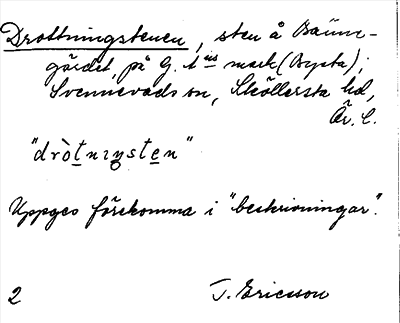 Drottningstenen, sten å Bäum-
gärdet, på G. 1 us mark (Bysta);
Svennevads sn, Sköllersta hd,
Är. l.
"dròtnıŋsten"
Uppges förekomma i "beskrivningar".
2 T. Ericsson